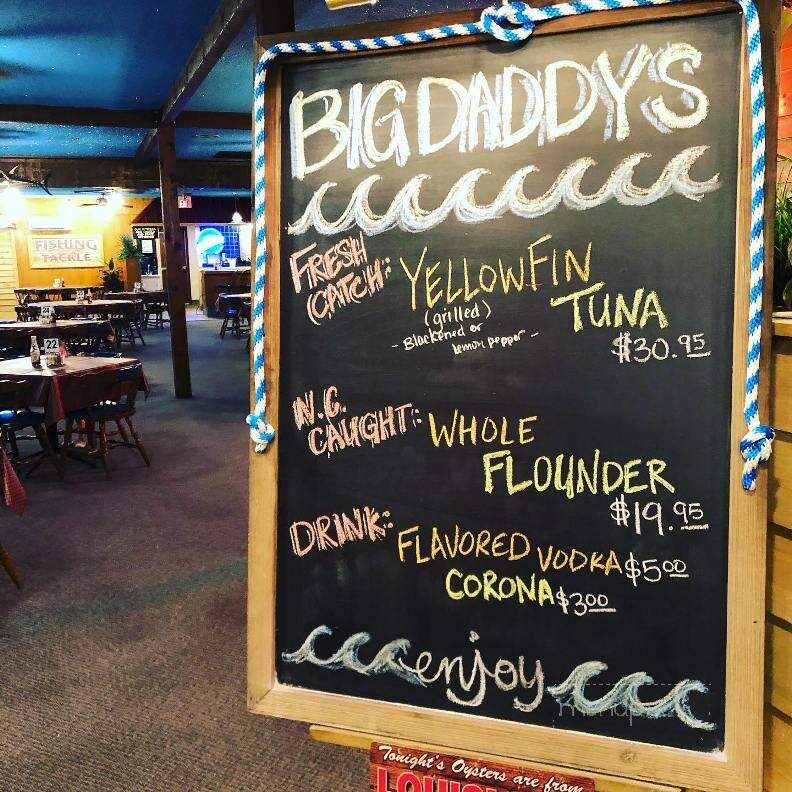 BIG DADDY'S
FRESH
CATCH:
YELLOWFIN
TUNA
(grilled)
- Blackened or
lemon pepper -
$30.95
N.C.
CAUGHT:
WHOLE
FLOUNDER
$19.95
DRINK:
FLAVORED VODKA $5.00
CORONA $3.00
enjoy
Tonight's Oysters are from
FISHING
TACKLE
24
22